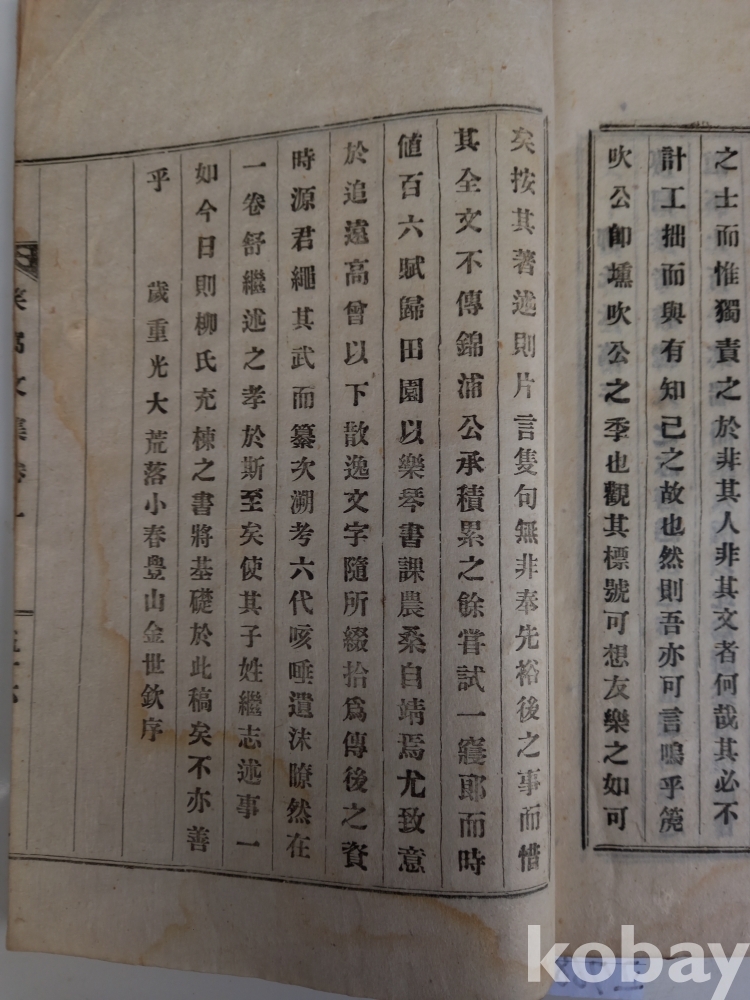 之士而惟獨責之於非其人非其文者何哉其必不
計工拙而與有知己之故也然則吾亦可言嗚乎篪
吹公卽壎吹公之季也觀其標號可想友樂之如可
矣按其著述則片言隻句無非奉先裕後之事而惜
其全文不傳錦浦公承積累之餘嘗試一寢郞而時
値百六賦歸田園以樂琴書課農桑自靖焉尤致意
於追遠高曾以下散逸文字隨所綴拾爲傳後之資
時源君繩其武而纂次溯考六代咳唾遺沫瞭然在
一卷舒繼述之孝於斯至矣使其子姓繼志述事一
如今日則柳氏充棟之書將基礎於此稿矣不亦善
乎 歲重光大荒落小春豊山金世欽序
文集卷一
kobay